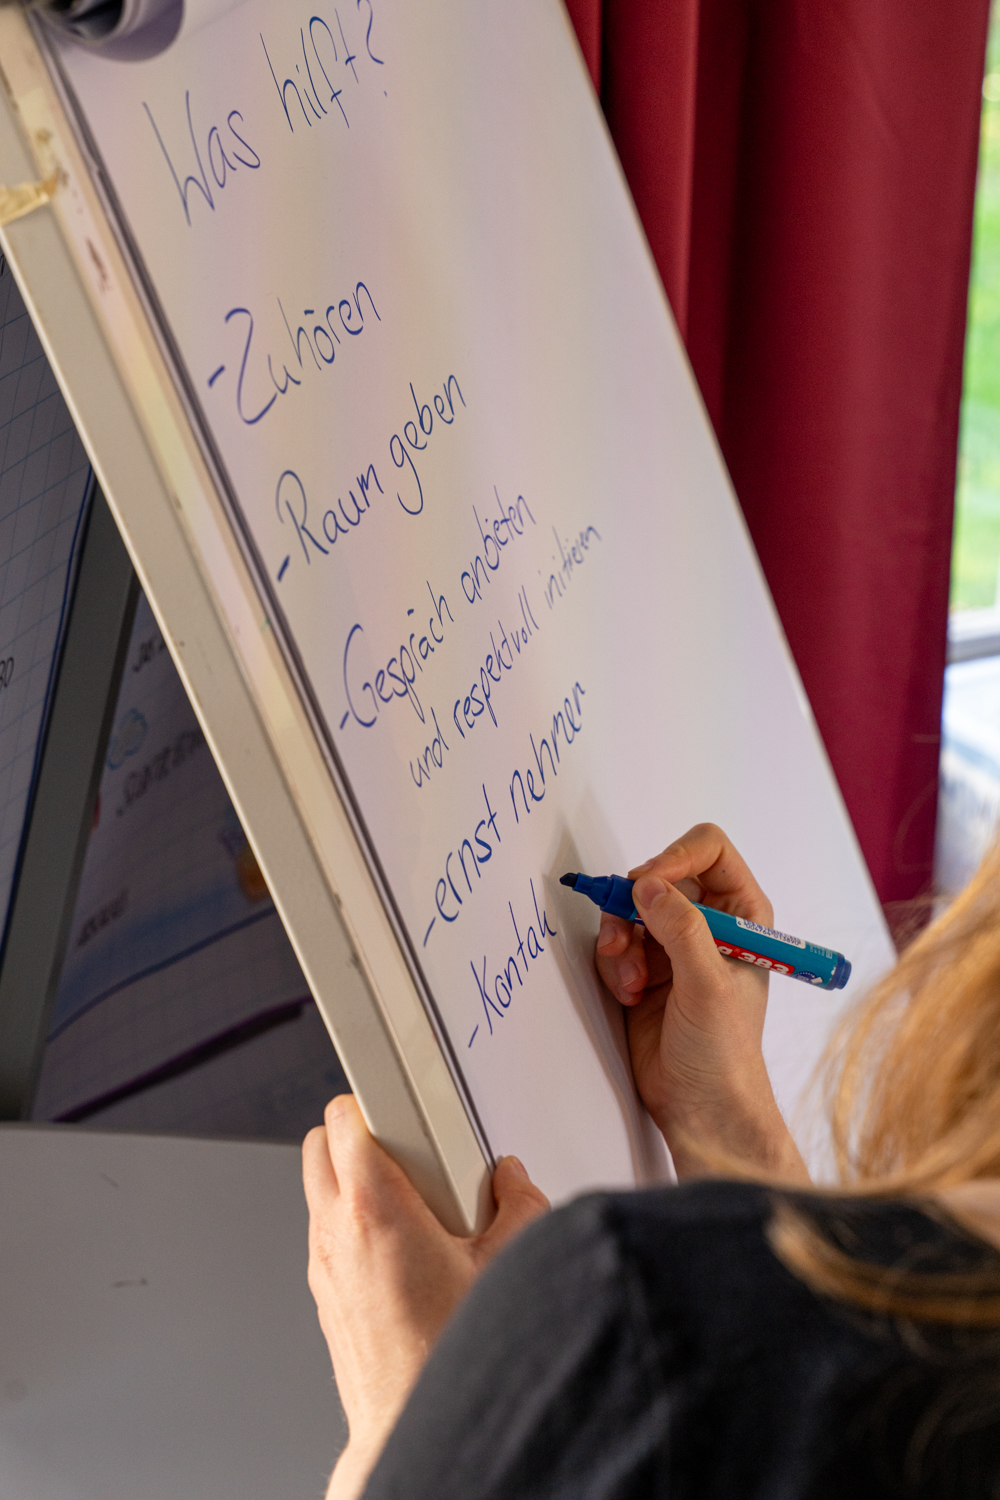 Was hilft?
- Zuhören
- Raum geben
- Gespräch anbieten
und respektvoll initiieren
- ernst nehmen
- Kontak
383